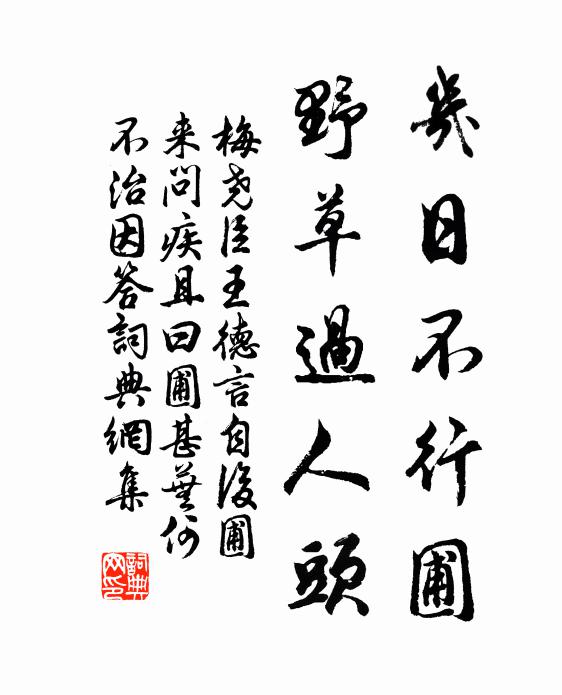 幾日不行圃
野草過人頭
梅堯臣王德言自後圃
来問疾且曰圃甚蕪何
不治因答詞典網集
詞典网印